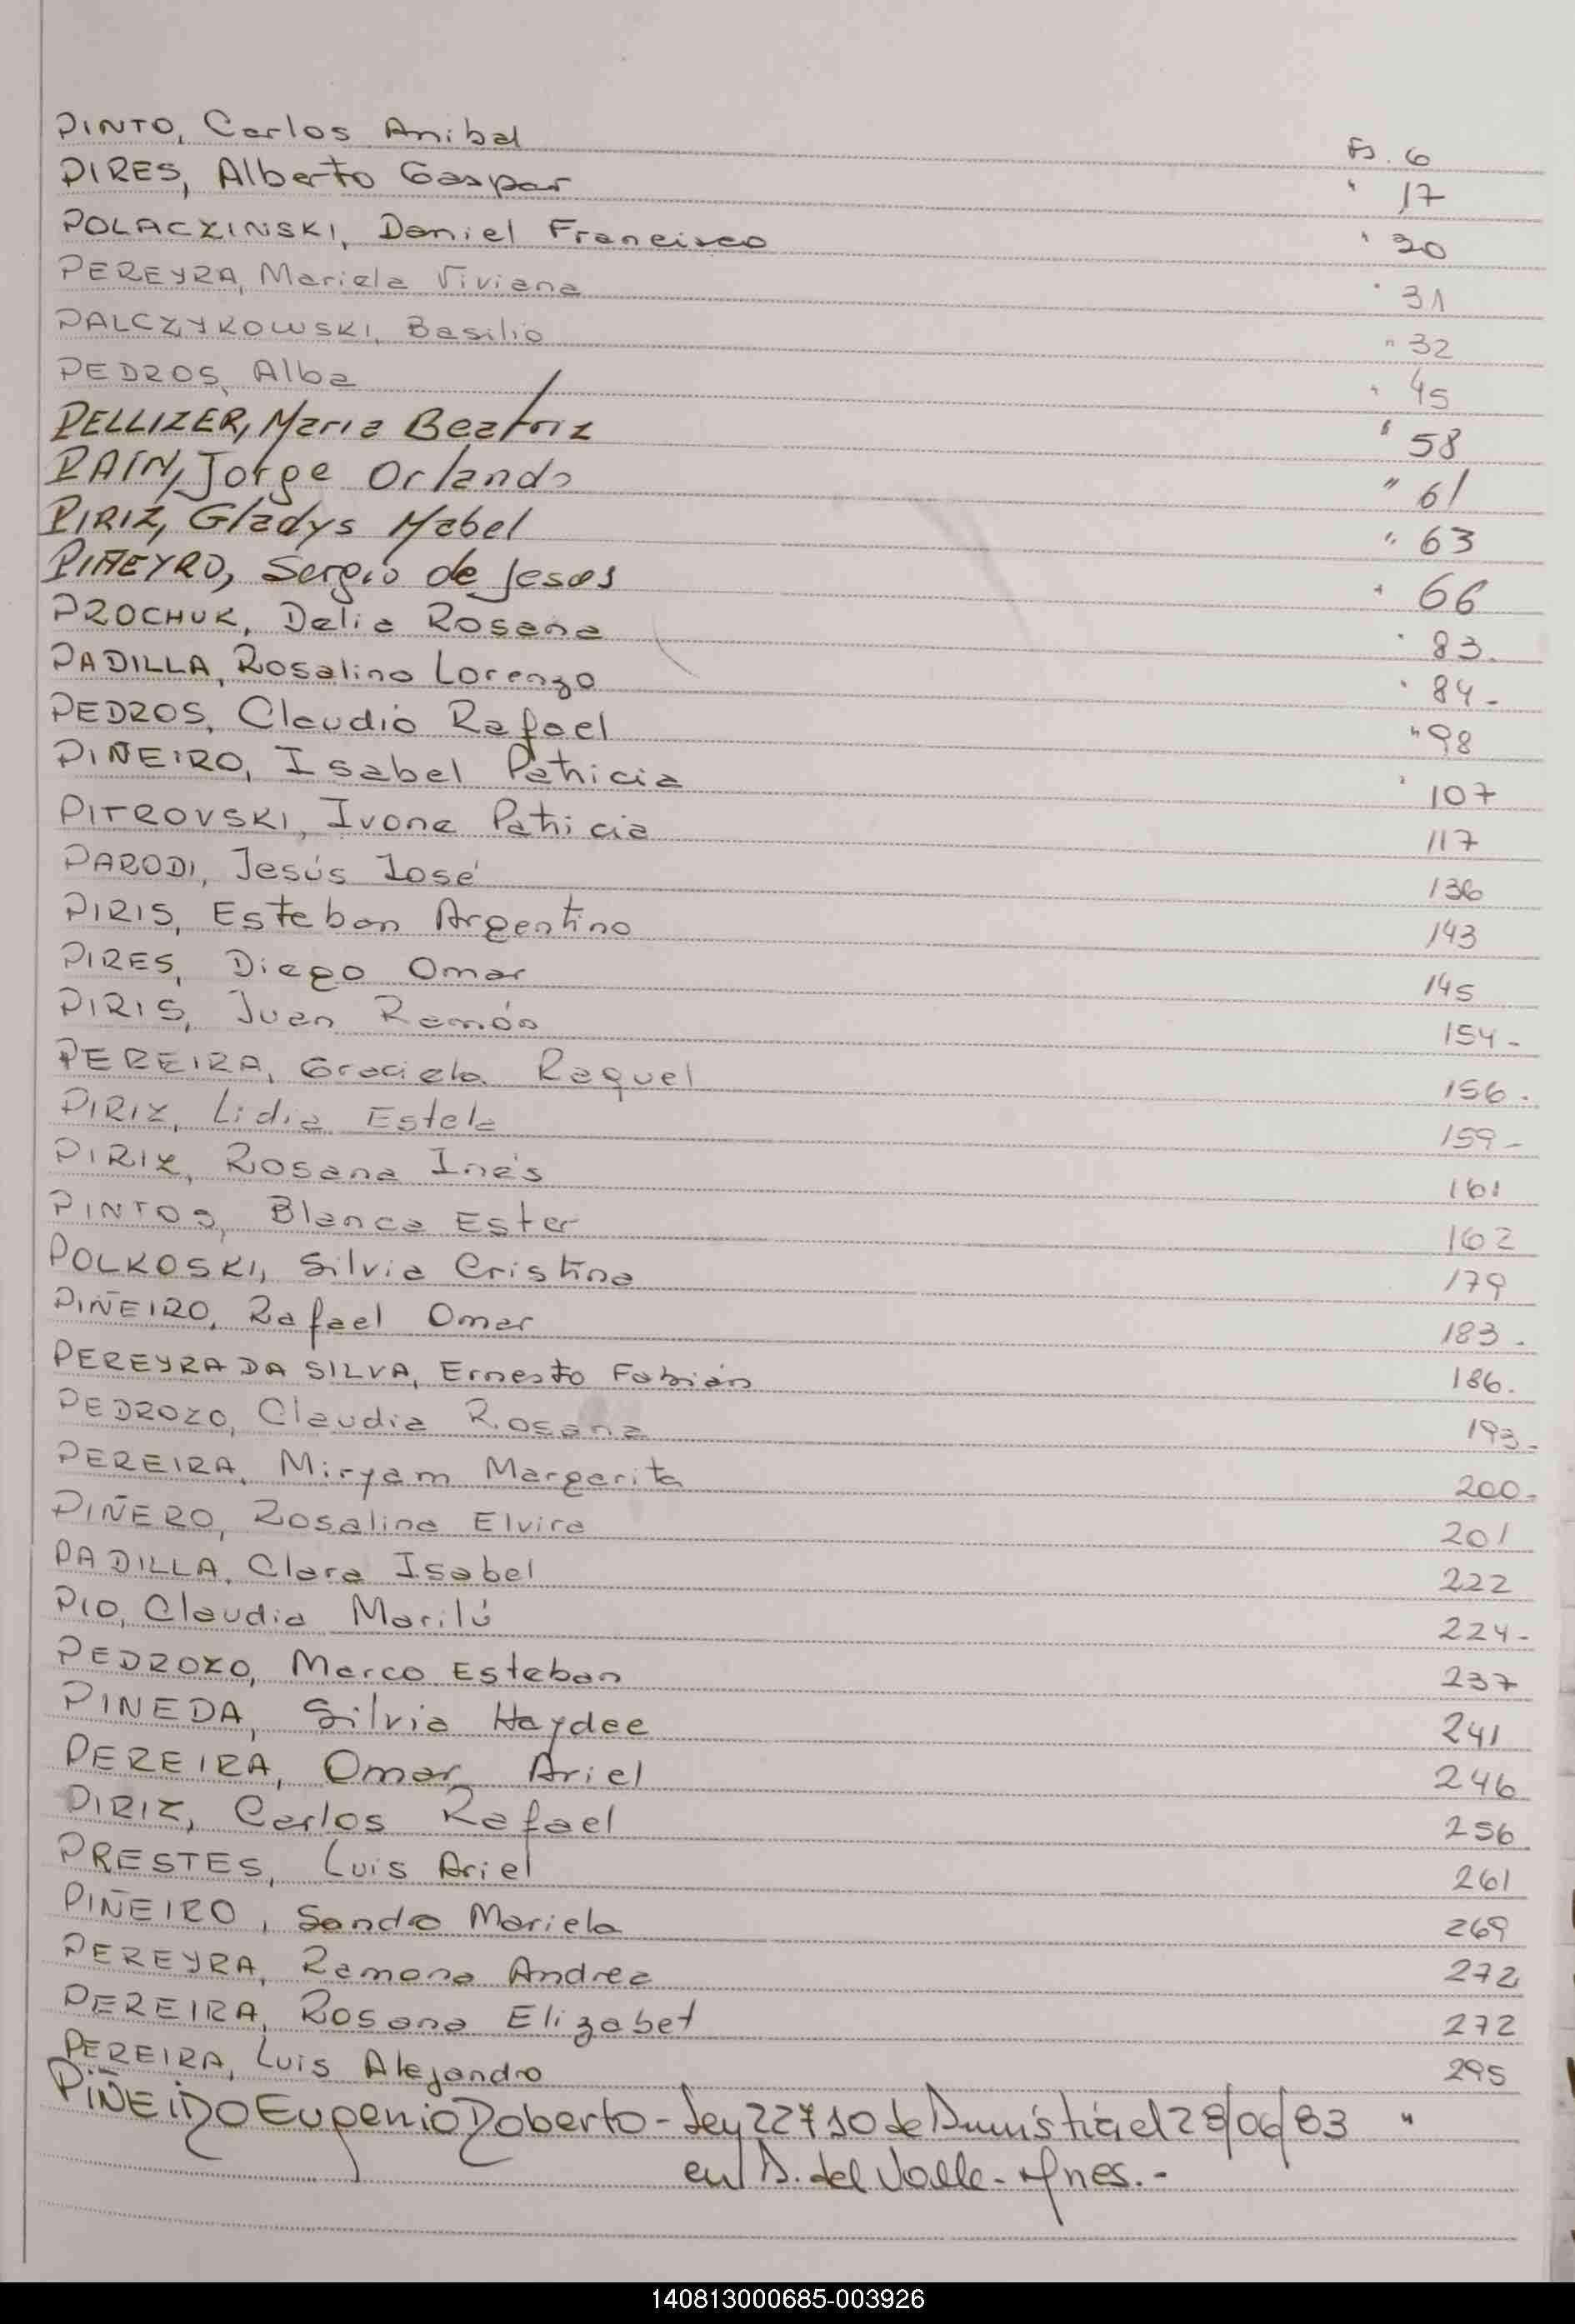 PINTO, Carlos Anibal Fs. 6
PIRES, Alberto Gaspar " 17
POLACZINSKI, Daniel Francisco " 20
PEREYRA, Mariela Viviana " 31
PALCZYKOWSKI, Basilio " 32
PEDROS, Alba " 45
PELLIZER, Maria Beatriz " 58
PAIN, Jorge Orlando " 61
PIRIZ, Gladys Mabel " 63
PIÑEYRO, Sergio de Jesus " 66
PROCHUK, Delia Rosana " 83.
PADILLA, Rosalino Lorenzo " 84-
PEDROS, Claudio Rafael " 98
PIÑEIRO, Isabel Patricia " 107
PITROVSKI, Ivone Patricia 117
PARODI, Jesús José 136
PIRIS, Esteban Argentino 143
PIRES, Diego Omar 145
PIRIS, Juan Ramón 154-
PEREIRA, Graciela Raquel 156.
PIRIZ, Lidia Estela 159-
PIRIZ, Rosana Inés 161
PINTOS, Blanca Ester 162
POLKOSKI, Silvia Cristina 179
PIÑEIRO, Rafael Omar 183.
PEREYRA DA SILVA, Ernesto Fabián 186.
PEDROZO, Claudia Rosana 193-
PEREIRA, Miryam Margarita 200-
PIÑERO, Rosalina Elvira 201
PADILLA, Clara Isabel 222
PIO, Claudia Marilú 224-
PEDROZO, Marco Esteban 237
PINEDA, Silvia Haydee 241
PEREIRA, Omar Ariel 246
PIRIZ, Carlos Rafael 256
PRESTES, Luis Ariel 261
PIÑEIRO, Sandra Mariela 269
PEREYRA, Ramona Andrea 272
PEREIRA, Rosana Elizabet 272
PEREIRA, Luis Alejandro 295
PIÑEIRO Eugenio Roberto - Ley 22710 de Amnistia el 28/06/83 "
en A. del Valle - Mnes.-
140813000685-003926